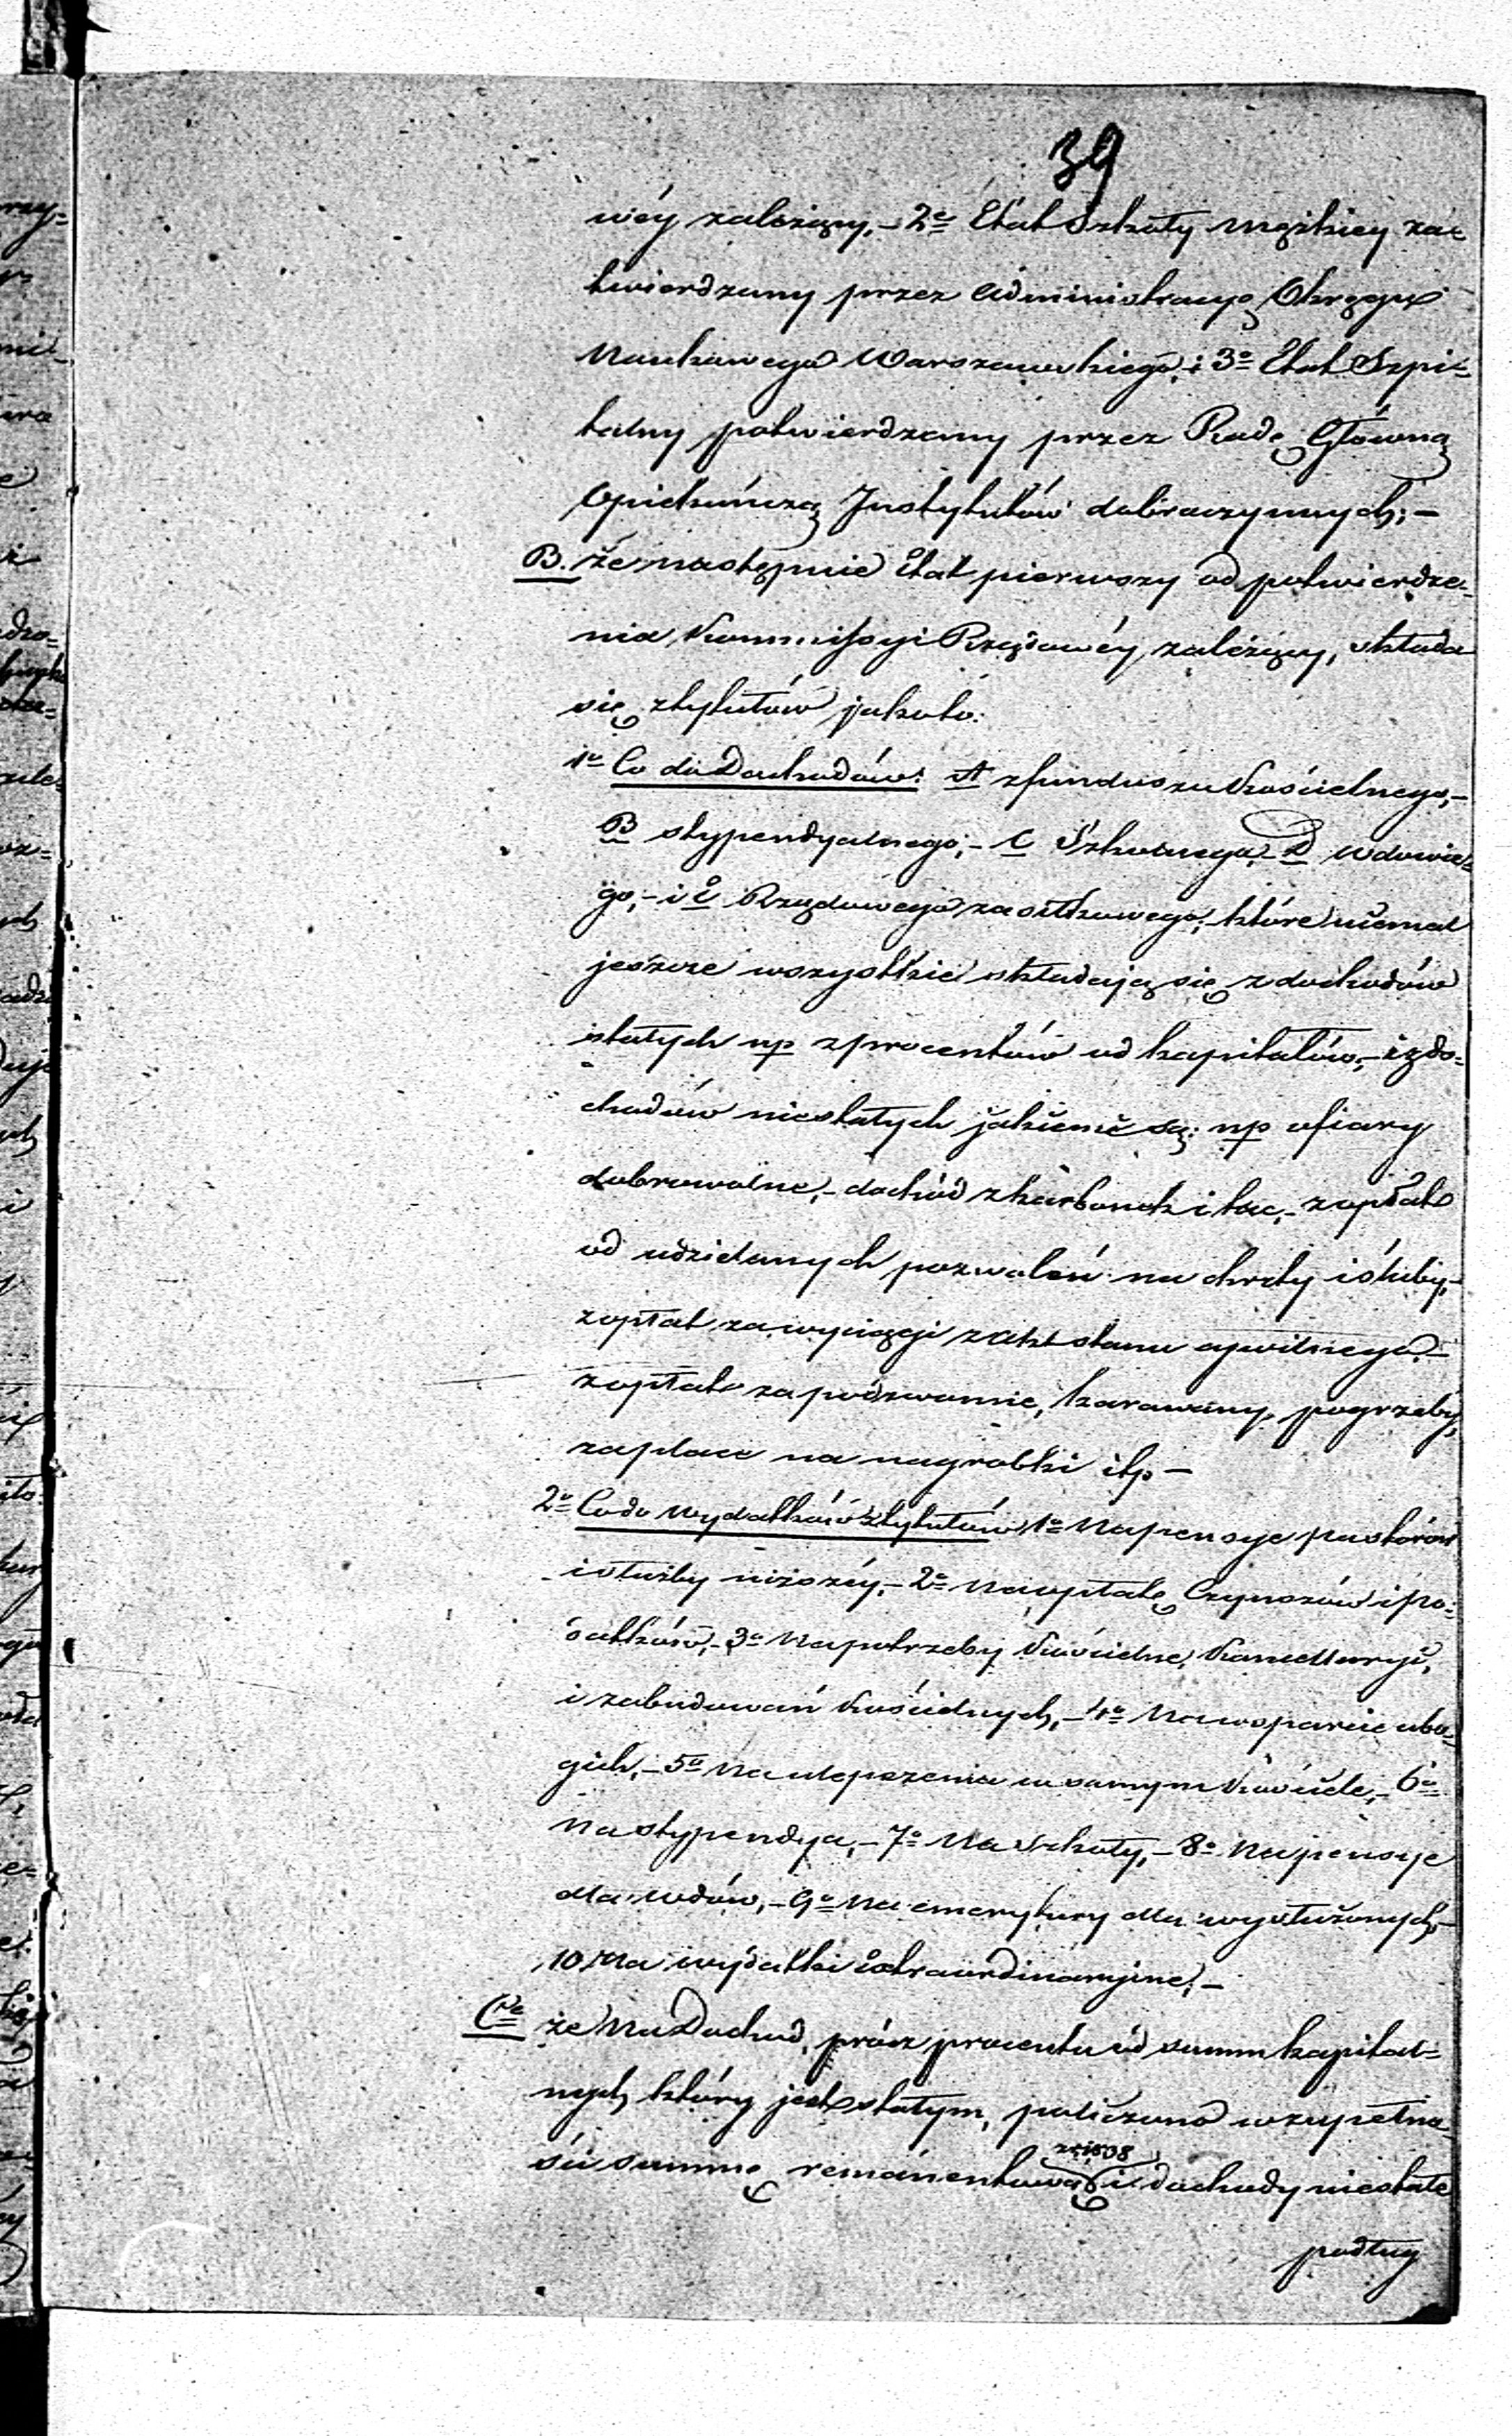 39
wéy zależący, - 2o Etat Szkoły męzkiey za=
twierdzany przez Administracyą Okręgu
Naukowego Warszawskiego, i 3o Etat Szpi=
talny potwierdzany przez Radę Główną
Opiekuńczą Instytutów dobroczynnych; -
B. że następnie Etat pierwszy od potwierdze=
nia Kommissyi Rządowéy zależący, składa
się z tytułów jakoto:
1o Co do Dochodów: A z funduszu Kościelnego, -
B stypendyalnego; - C Szkolnego, - D wdowie=
go, - i E Rządowego zasiłkowego; które niemal
jeszcze wszystkie składają się z dochodów
stałych np z procentów od kapitałów, - i z do=
chodów niestałych jakiemi są: np ofiary
dobrowolne, - dochód z karbonek i tac, - z opłat
od udzielanych pozwoleń na chrzty i śluby, -
z opłat za wyciągi z akt stanu cywilnego -
z opłat za podzwonne, karawany, pogrzeby,
za place na nagrobki itp -
2o Co do Wydatków z tytułów 1o Na pensye pastorów
i służby niższéy, - 2o Na opłatę Czynszów i po=
datków, - 3o Na potrzeby Kościelne, Kancellaryi,
i zabudowań Kościelnych, - 4o Na wsparcie ubo=
gich, - 5o Na ulepszenia w samym Kościele, - 6o
Na stypendya, - 7o Na Szkoły, - 8o Na pensye
dla wdów, - 9o Na emerytury dla wysłużonych, -
10 Na wydatki extraordinaryjne, -
C że Na Dochód, prócz procentu od summ kapital=
nych który jest stałym, policzono w zupełno=
ści summę remanentową z r. 1838 i dochody niestałe
podług